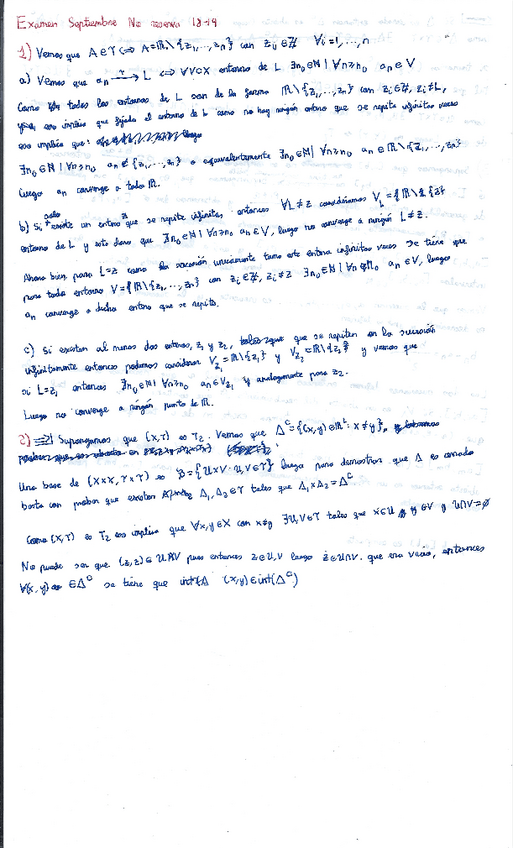 Examen Septiembre No reserva 18-19
1) Vemos que A∈τ ⟺ A=ℝ\{z₁,...,zₙ} con zᵢ∈ℤ ∀i=1,...,n
a) Vemos que aₙ →τ L ⟺ ∀V⊂X entorno de L ∃n₀∈ℕ | ∀n≥n₀ aₙ∈V
Como todos los entornos de L son de la forma ℝ\{z₁,...,zₙ} con zᵢ∈ℤ, zᵢ≠L,
eso implica que fijado el entorno de L como no hay ningún entero que se repita infinitas veces
eso implica que:
∃n₀∈ℕ | ∀n≥n₀ aₙ∉{z₁,...,zₙ} o equivalentemente ∃n₀∈ℕ | ∀n≥n₀ aₙ∈ℝ\{z₁,...,zₙ}
luego aₙ converge a todo ℝ.
b) Si existe un entero z que se repite infinito, entonces ∀L≠z consideramos V_L={ℝ\{z}}
entorno de L y esto dara que ∄n₀∈ℕ | ∀n≥n₀ aₙ∈V, luego no converge a ningún L≠z.
Ahora bien, para L=z como la sucesión unicamente toma este entero infinitas veces se tiene que
para todo entorno V={ℝ\{z₁,...,zₙ}} con zᵢ∈ℤ, zᵢ≠z ∃n₀∈ℕ | ∀n≥n₀ aₙ∈V, luego
aₙ converge a dicho entero que se repita.
c) Si existen al menos dos enteros, z₁ y z₂, que se repiten en la sucesión
infinitamente entonces podemos considerar V_z₁=ℝ\{z₁} y V_z₂=ℝ\{z₂} y vemos que
si L=z₁ entonces ∄n₀∈ℕ | ∀n≥n₀ aₙ∈V_z₁ y analogamente para z₂.
Luego no converge a ningún punto de ℝ.
2) Supongamos que (X,τ) es T₂. Vemos que Δᶜ={(x,y)∈ℝ²: x≠y},
Una base de (X×X, τ×τ) es β={U×V: U,V∈τ} luego para demostrar que Δ es cerrado
basta con probar que existen Δ₁,Δ₂∈τ tales que Δ₁×Δ₂=Δᶜ
Como (X,τ) es T₂ eso implica que ∀x,y∈X con x≠y ∃U,V∈τ tales que x∈U y y∈V y U∩V=∅
No puede ser que (z,z)∈U×V pues entonces z∈U,V luego z∈U∩V. que era vacio, entonces
∀(x,y) ∈Δᶜ se tiene que (x,y)∈int(Δᶜ)